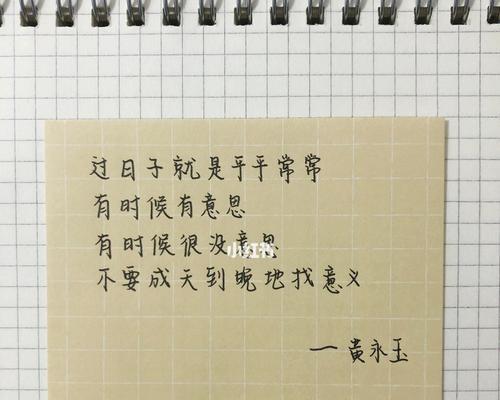 过日子就是平平常常
有时候有意思
有时候很没意思
小红书
不要成天到晚地找意义
一黄永玉